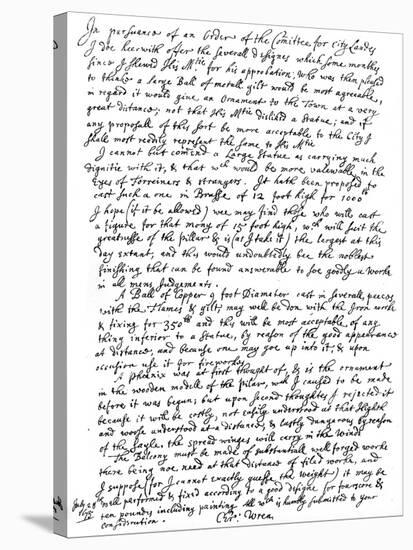 In pursuance of an Order of the Comittee for City Landes
I doe heerwith offer the severall designes which some monthes
since I shewed His M.tie for his approbation, who was then pleased
to thinke a large Ball of metall gilt would be most agreeable,
in regard it would give an Ornament to the Town at a very
great distance; not that His M.tie disliked a Statue; and if
any proposall of this sort be more acceptable to the City I
shall most readily represent the same to His M.tie
I cannot but comend a Large Statue as carrying much
dignitie with it, & that wch would be more valewable in the
Eyes of Forreiners & strangers. It hath been proposed to
cast such a one in Brasse of 12 foot high for 1000
I hope (if it be allowed) wee may find those who will cast
a figure for that mony of 15 foot high, wch will suit the
greatnesse of the pillar & is (as I take it) the largest at this
day extant; and this would undoubtedly bee the noblest
finishing that can be found answerable to soe goodly a worke
in all mens Judgements.
A Ball of Copper 9 foot Diameter cast in severall peeces
with the Flames & gilt; may well be don with the Iron worke
& fixing for 350 and this will be most acceptable of any
thing inferior to a Statue, by reason of the good appearance
at distance, and because one may goe up into it; & upon
occasion use it for fireworkes
A Phoenix was at first thought of, & is the ornament
in the wooden modell of the pilar, wch I caused to be made
before it was begun; but upon second thoughts I rejected it
because it will be costly, not easily understood at that Highth
and worse understood at a distance, & lastly dangerous by reason
of the sayle the spread winges will carry in the winde
The Balcony must be made of substantiall well forged worke
there being noe need at that distance of filed worke, and
I suppose (for I cannot exactly guesse the weight) it may be
well performed & fixed according to a good designe for fourscore &
ten pounds including painting All wch is humbly submitted to your
consideration. Chr. Wren.
July 28th
1675